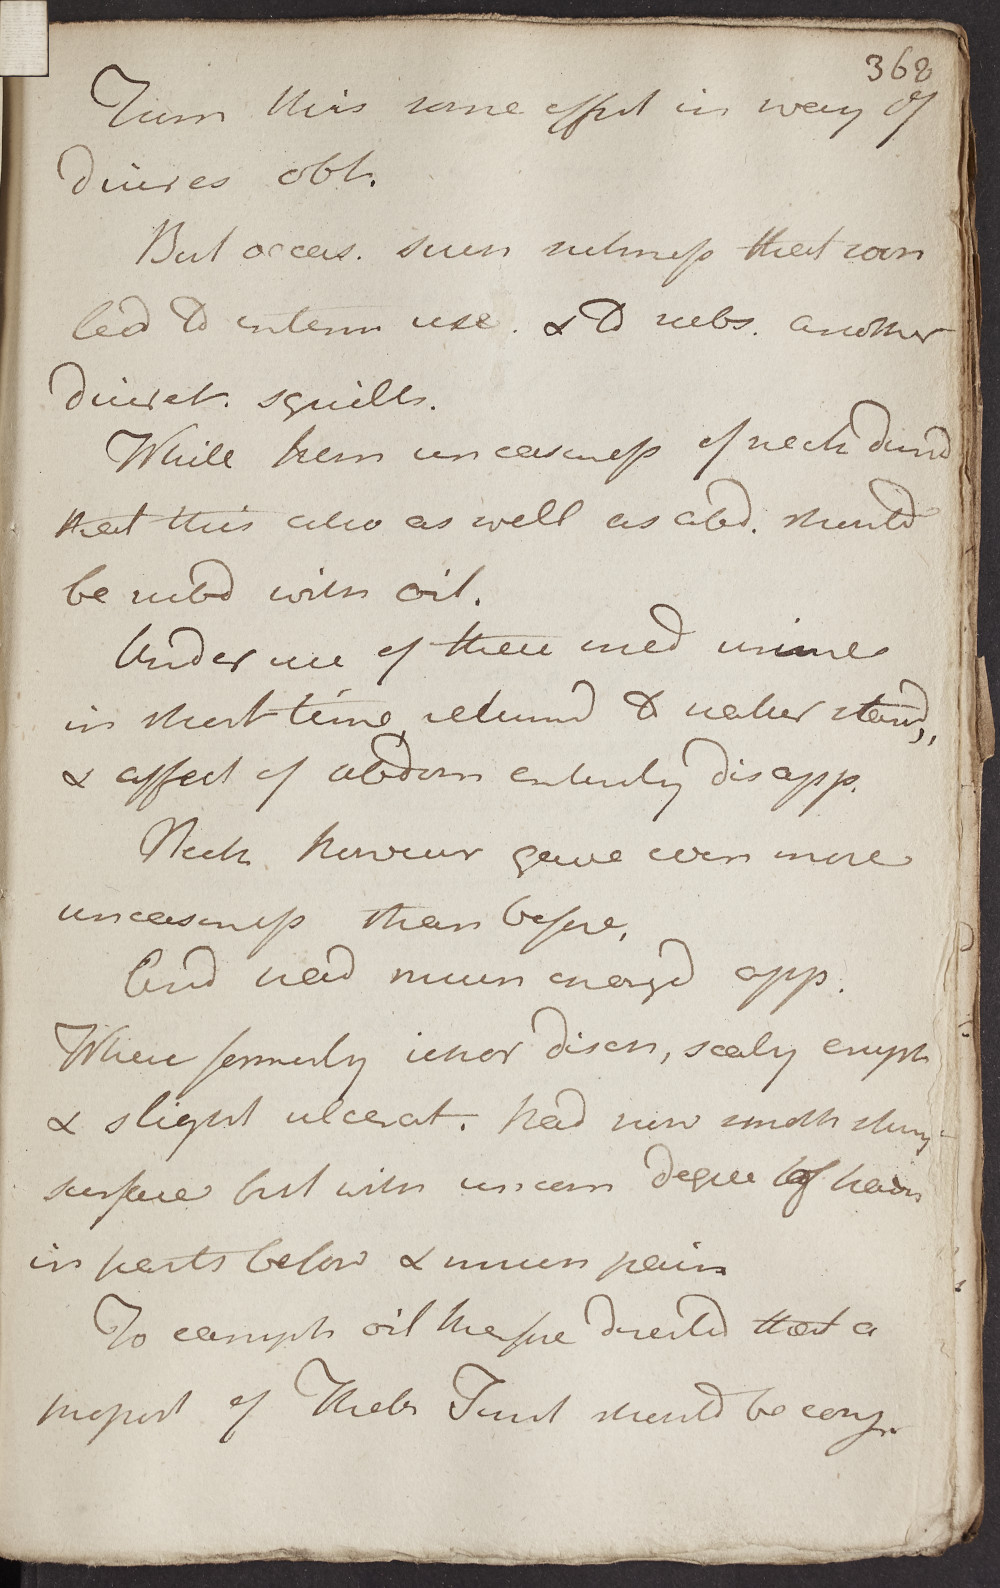 368
From this some effect in way of
diures obt.
But occas. such sickness that soon
led to interm use. & to subs. another
diuret. squills.
While from uneasiness of neck dird
that this also as well as abd. should
be rubd with oil.
Under use of these med urine
in short time, returnd to nalur stand,
& affect of abdom entirely disapp.
Neck however gave even more
uneasiness than before.
And had much enlargd app.
Where formerly ichor disch, scaly erupt
& slight ulcerat. had now smooth shing
surface but with uncom degree of hardn
in parts below & much pain
To camph oil therefore directd that a
proport of Theb Tinct should be conj.